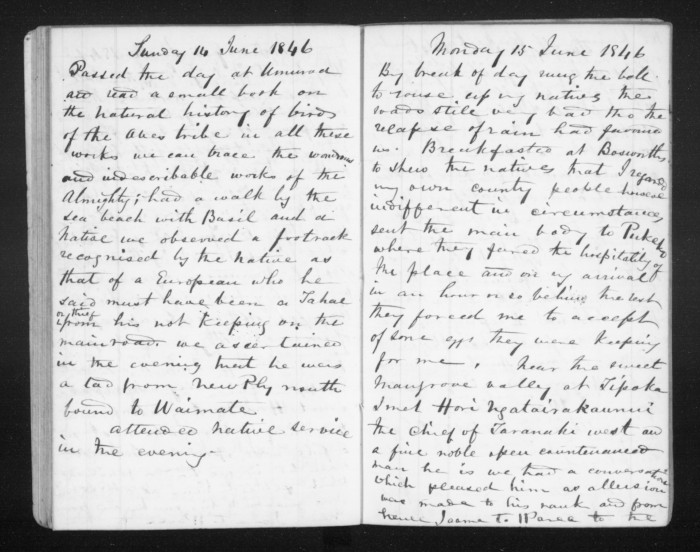 Sunday 14 June 1846
Passed the day at Umuroa
and read a small book on
the natural history of birds
of the Aves tribe in all these
works we can trace the wondrous
and undescribable works of the
Almighty; had a walk by the
sea beach with Basil and a
native we observed a footrack
recognised by the native as
that of a European who he
said must have been a Tahae
or thief
from his not keeping on the
main road. we ascertained
in the evening that he was
a lad from New Plymouth
bound to Waimate
attended native service
in the evening.
Monday 15 June 1846
By break of day rung the bell
to rouse up my natives the
roads still very bad tho the
relapse of rain had favoured
us. Breakfasted at Bosworths
to shew the natives that I regard
my own county people however
indifferent in circumstances
sent the main body to
where they shared the hospitality of
the place and on my arrival
in an hour or so behind the last
they forced me to accept
of some eggs they were keeping
for me. Near the sweet
Mangrove valley at Tipoka
I met Hori Ngatairakaunui
the chief of Taranaki west and
a fine noble open countenanced
man he is we had a conversation
which pleased him as allusion
was made to his rank and from
hence I came to to the